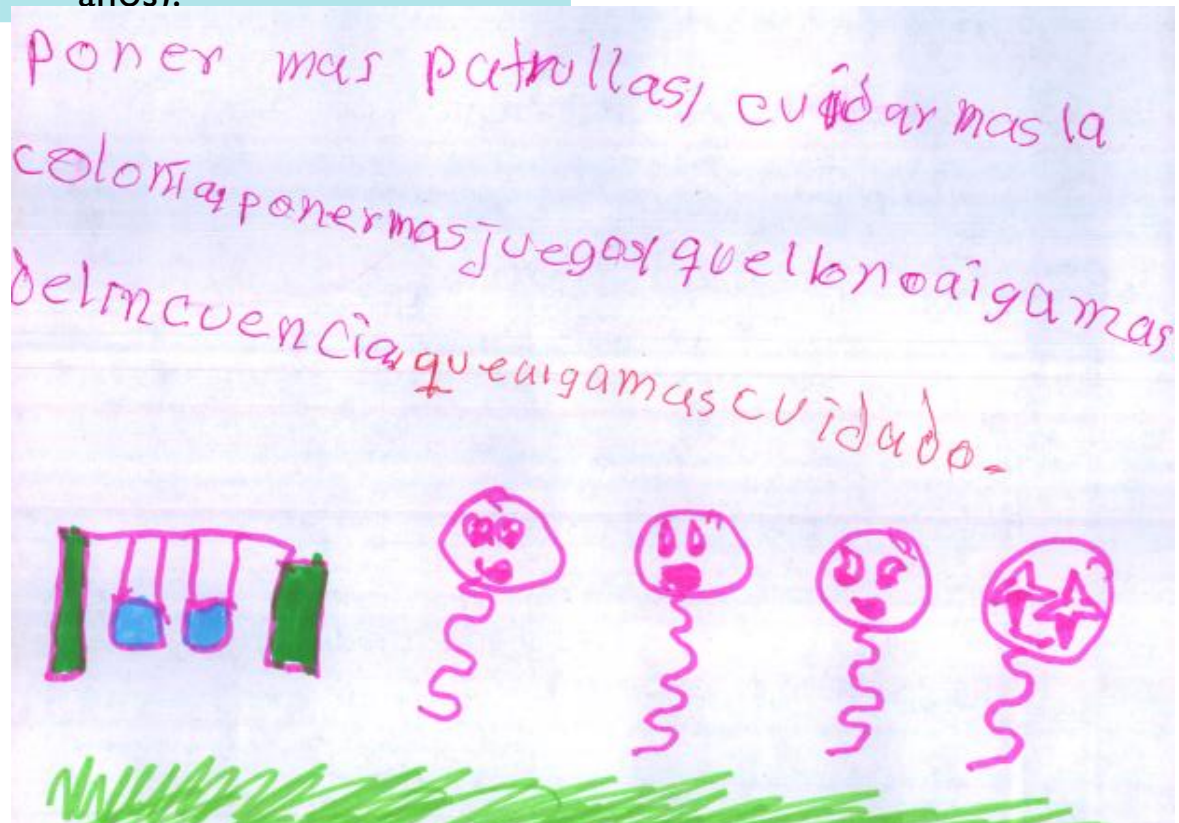 años).
poner mas patrullas, cuidar mas la
colonia, poner mas juegos, que llo no aiga mas
Delincuencia, que aiga mas cuidado.